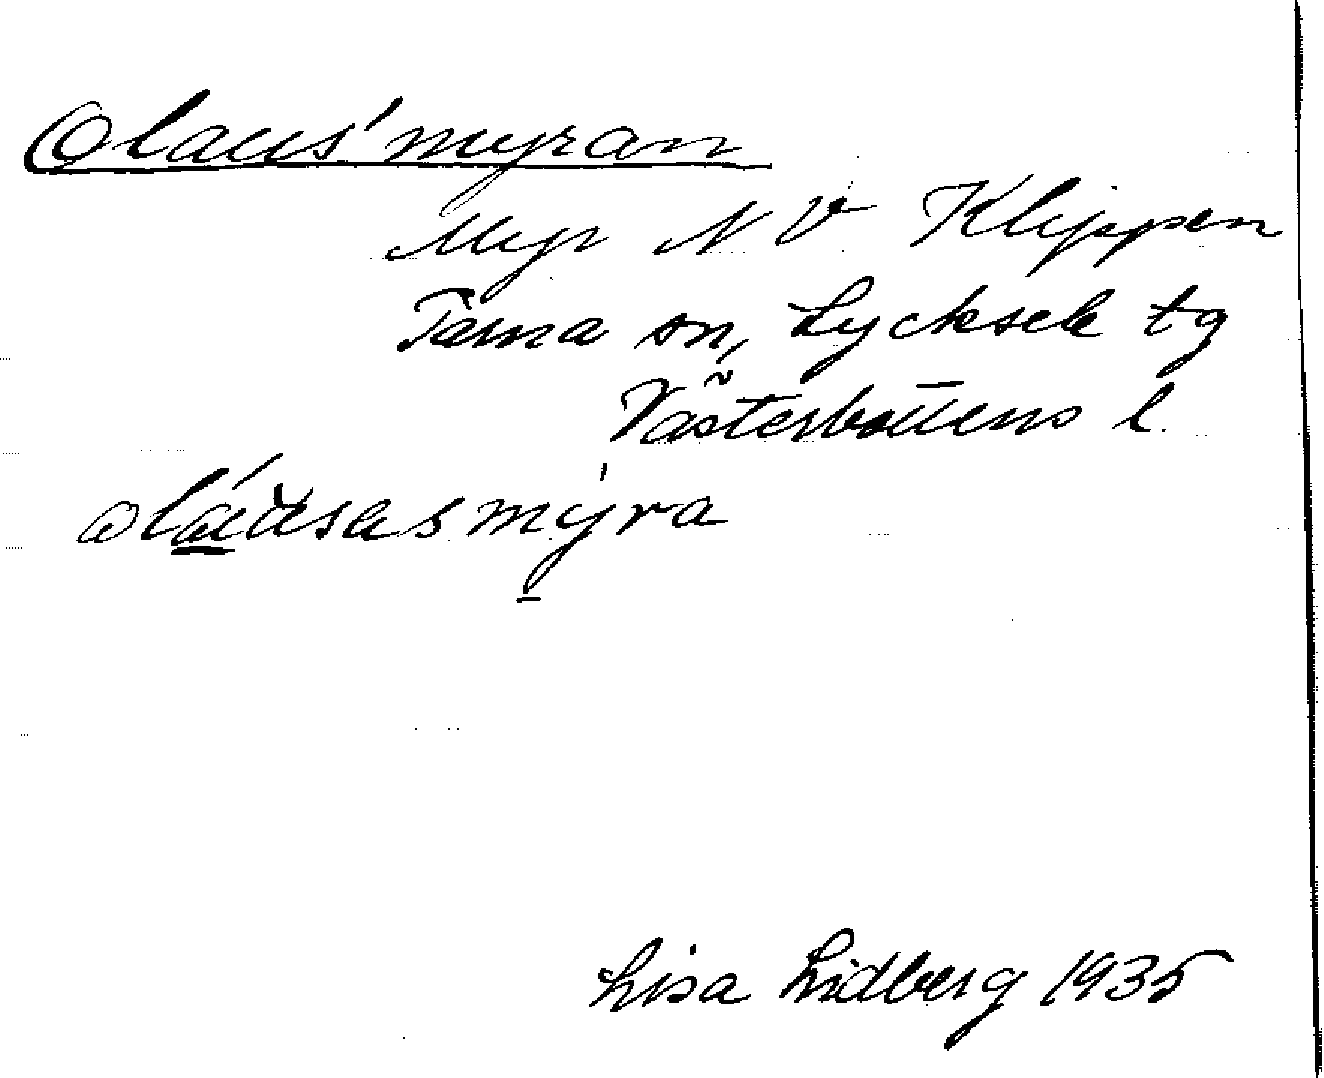 Olaus'myran
Myr NV Klippen
Tärna sn, Lycksele tg
Västerbottens l.
oláusasmyra
Lisa Lidberg 1935